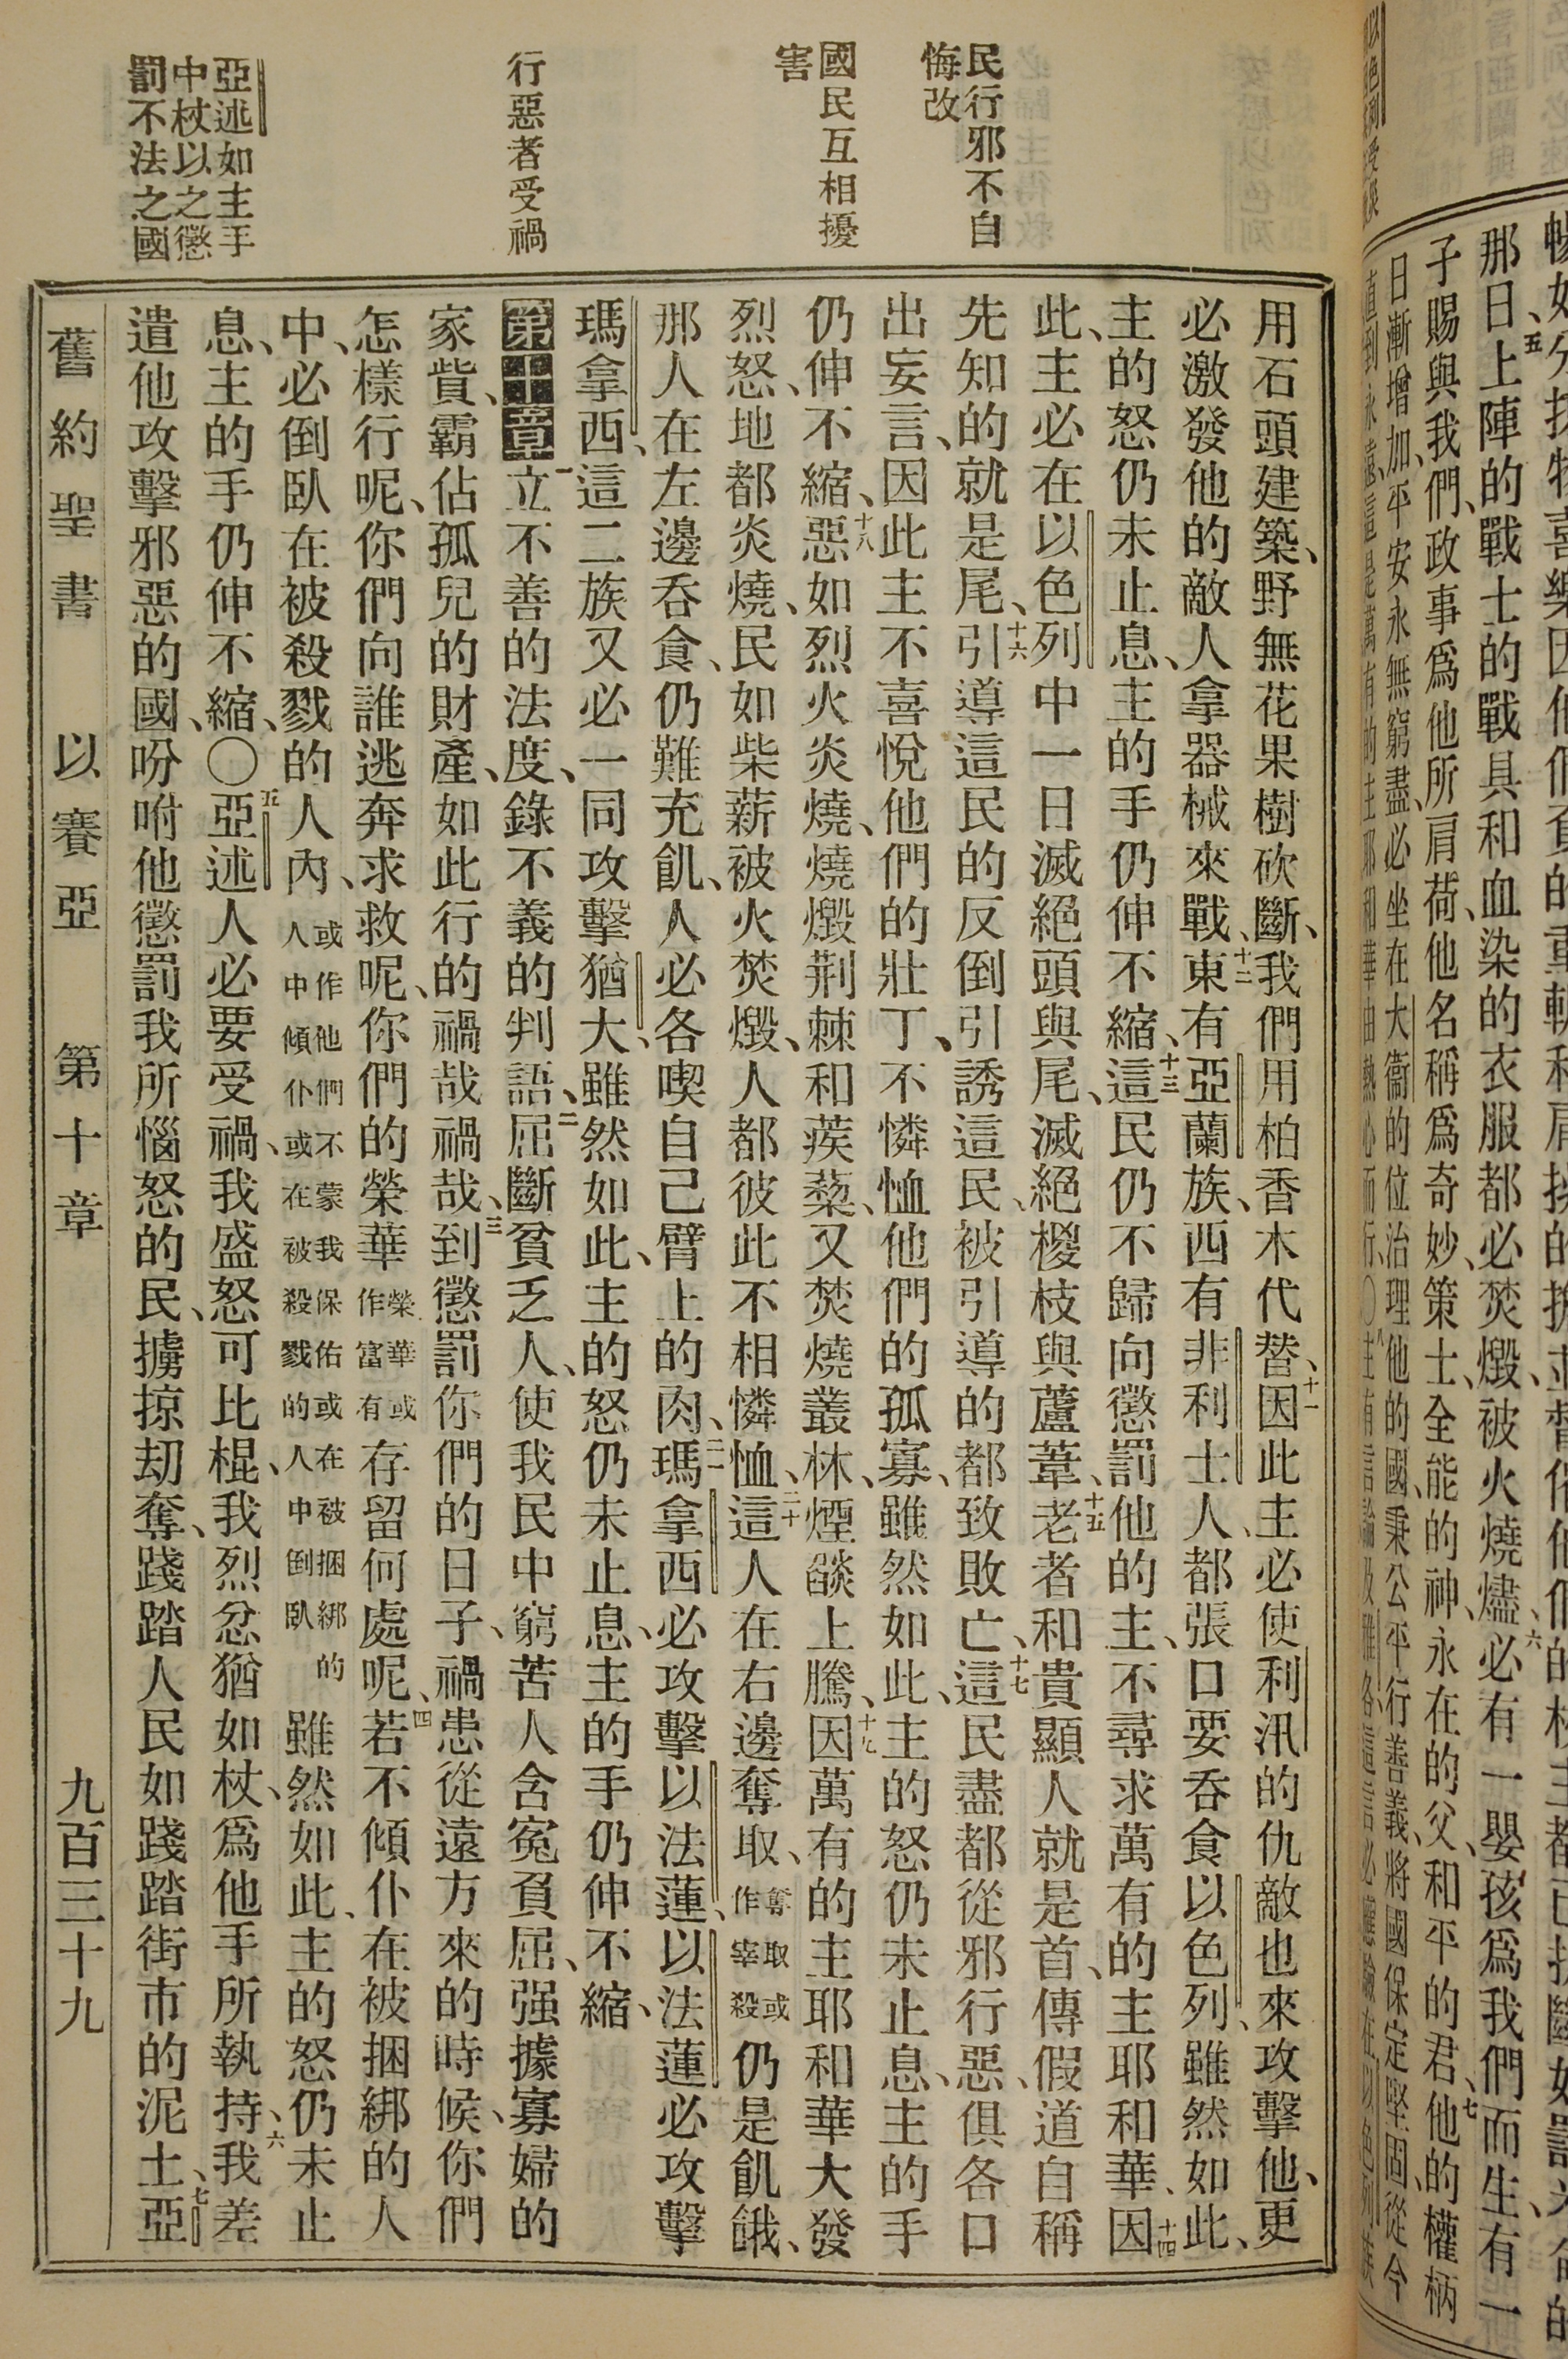 民行邪不自
悔改
國民互相擾
害
行惡者受禍
亞述如主手
中杖以之懲
罰不法之國
用石頭建築、野無花果樹砍斷、我們用柏香木代替、十一因此主必使利汛的仇敵也來攻擊他、更
必激發他的敵人拿器械來戰、十二東有亞蘭族、西有非利士人、都張口要吞食以色列、雖然如此、
主的怒仍未止息、主的手仍伸不縮、十三這民仍不歸向懲罰他的主、不尋求萬有的主耶和華、十四因
此、主必在以色列中一日滅絕頭與尾、滅絕椶枝與蘆葦、十五老者和貴顯人就是首、傳假道自稱
先知的就是尾、十六引導這民的反倒引誘這民、被引導的都致敗亡、十七這民盡都從邪行惡、俱各口
出妄言、因此主不喜悅他們的壯丁、不憐恤他們的孤寡、雖然如此、主的怒仍未止息、主的手
仍伸不縮、十八惡如烈火炎燒、燒燬荆棘和蒺藜、又焚燒叢林、煙燄上騰、十九因萬有的主耶和華大發
烈怒、地都炎燒、民如柴薪被火焚燬、人都彼此不相憐恤、二十這人在右邊奪取、奪取或作宰殺仍是飢餓、
那人在左邊吞食、仍難充飢、人必各喫自己臂上的肉、二一瑪拿西必攻擊以法蓮、以法蓮必攻擊
瑪拿西、這二族又必一同攻擊猶大、雖然如此、主的怒仍未止息、主的手仍伸不縮、
第十章一立不善的法度、錄不義的判語、二屈斷貧乏人、使我民中窮苦人含寃負屈、强據寡婦的
家貲、霸佔孤兒的財產、如此行的禍哉禍哉、三到懲罰你們的日子、禍患從遠方來的時候、你們
怎樣行呢、你們向誰逃奔求救呢、你們的榮華榮華或作富有存留何處呢、四若不傾仆在被捆綁的人
中、必倒臥在被殺戮的人內、或作他們不蒙我保佑或在被捆綁的人中傾仆或在被殺戮的人中倒臥雖然如此、主的怒仍未止
息、主的手仍伸不縮、○五亞述人必要受禍、我盛怒可比棍、我烈忿猶如杖、爲他手所執持、六我差
遣他攻擊邪惡的國、吩咐他懲罰我所惱怒的民、擄掠刧奪、踐踏人民如踐踏街市的泥土、七亞
舊約聖書 以賽亞 第十章 九百三十九
那日上陣的戰士的戰具和血染的衣服都必焚燬、被火燒燼、六必有一嬰孩爲我們而生、有一
子賜與我們、政事爲他所肩荷、他名稱爲奇妙、策士、全能的神、永在的父、和平的君、七他的權柄
日漸增加、平安永無窮盡、必坐在大衞的位治理他的國、秉公平行善義、將國保定堅固、從今